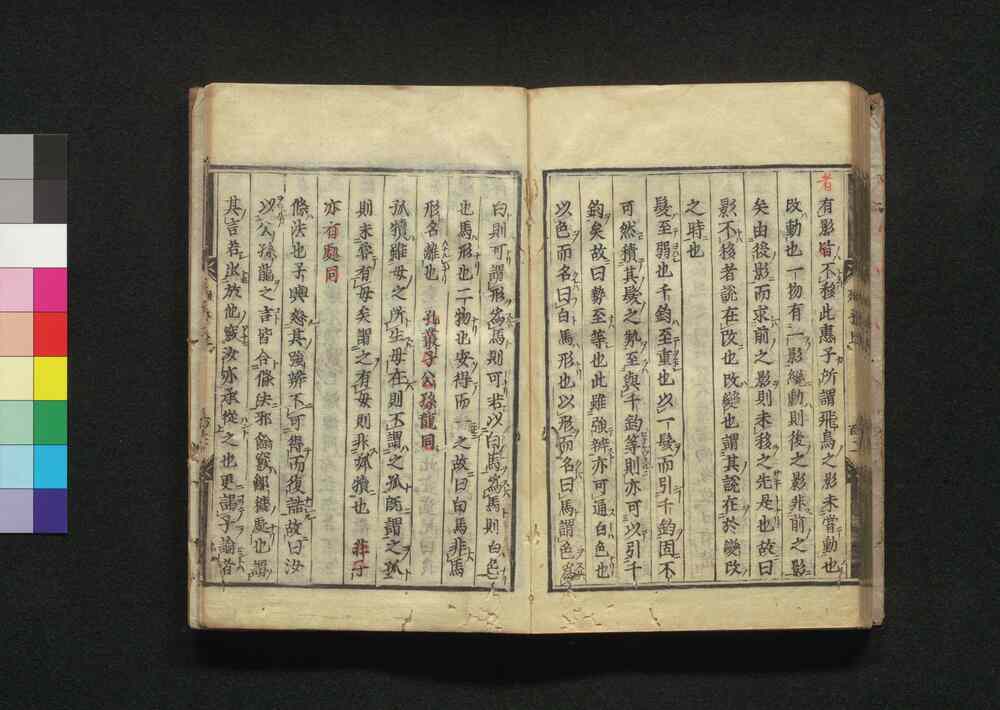 者有影皆不移此惠子所謂飛鳥之影未嘗動也
改動也一物有一影纔動則後之影非前之影
矣由後影而求前之影則未移之先是也故曰
影不移者說在改也改變也謂其說在於變改
之時也
髮至弱也千鈞至重也以一髮而引千鈞固不
可然積其髮之勢至與千鈞等則亦可以引千
鈞矣故曰勢至等也此雖強辨亦可通白色也
以色而名曰白馬形也以形而名曰馬謂色爲
白則可謂形爲馬則可若以白馬爲馬則白色
也馬形也二物也安得而一之故曰白馬非馬
形名離也 孔叢子公孫龍同
孤犢雖母之所生母在則不謂之孤旣謂之孤
則未嘗有母矣謂之有母則非孤犢也 莊子
亦有處同
條法也子輿怒其強辨不可得而復詰故曰汝
以公孫龍之言皆合條法邪餘竅
其言若出於他竅汝亦承從之也更謁子論者